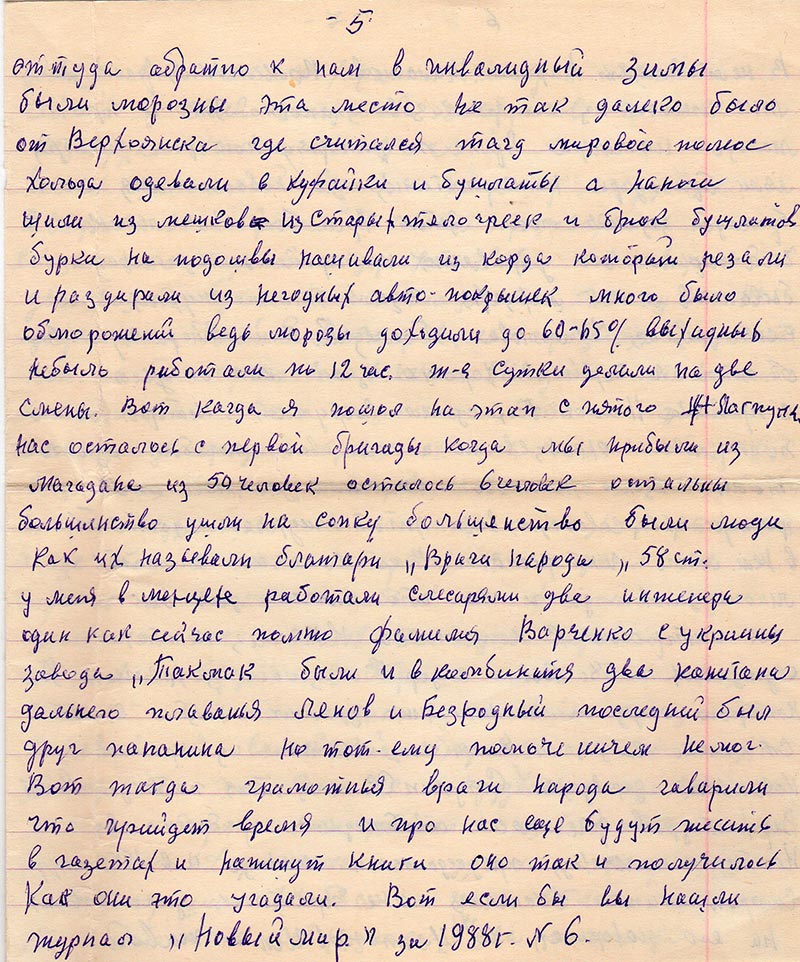 - 5.
оттуда абратно к нам в инвалидный зимы
были морозны эта место не так далеко было
от Верхоянска где считался тагд мировой полюс
Холода одевали в куфайки и бушлаты а наноги
шили из мешков из старых телогреек и брюк бушлатов
бурки на подошвы нашивали из корда который резали
и раздирали из негодных авто-покрышек много было
обморожений ведь морозы доходили до 60-65% выхадныъ
небыль работали по 12 час. т-е сутки делили на две
смены. Вот кагда я пошол на этап с пятого
нас осталось с первой бригады когда мы прибыли из
магадана из 50 человек осталось 6 человек остальны
большинство ушли на сопку большенство были люди
как их называли блатари „Враги народа„ 58 ст.
у меня в работали слесарями два инженера
один как сейчас помню фамилия Варченко с украины
завода „Такмак были и в комбината два капитана
дальнего плаванья Ленов и Безродный последний был
друг папанина но тот-ему помоче ничем немог.
Вот тагда грамотныя враги народа гаварили
что прийдет время и про нас еще будут писать
в газетах и напишут книги оно так и получилось
Как они это угадали. Вот если бы вы нашли
журнал „Новый мир" за 1988г. N 6.